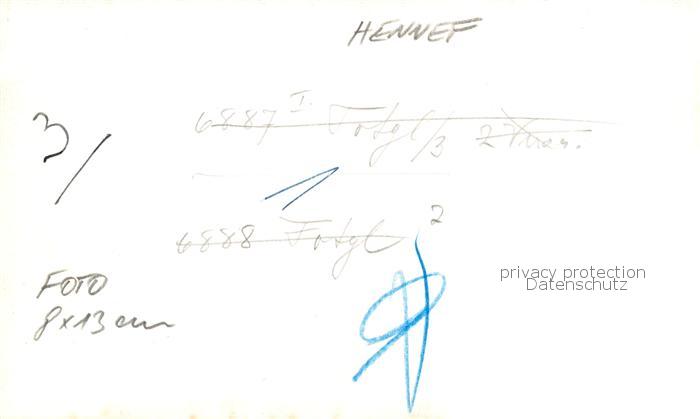 HENNEF
3/
6887 I. Fotgl/3 2
1
6888 Fotgl 2
FOTO
8x13 cm
privacy protection
Datenschutz